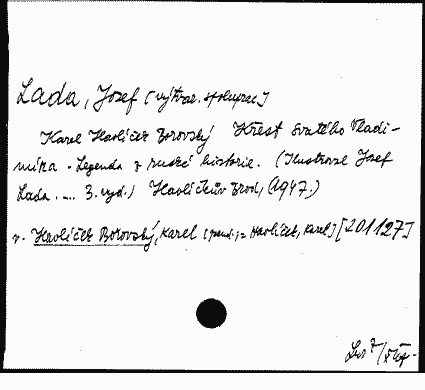 Lada, Josef [výtvar. spoluprac]
Karel Havlíček Borovský Křest svatého Vladi-
míra. Legenda z ruské historie. (Ilustrace Josef
Lada .... 3. vyd.) Havlíčkův Brod, (1947.)
v. Havlíček Borovský, Karel [pseud.; = Havlíček, Karel] [201127]